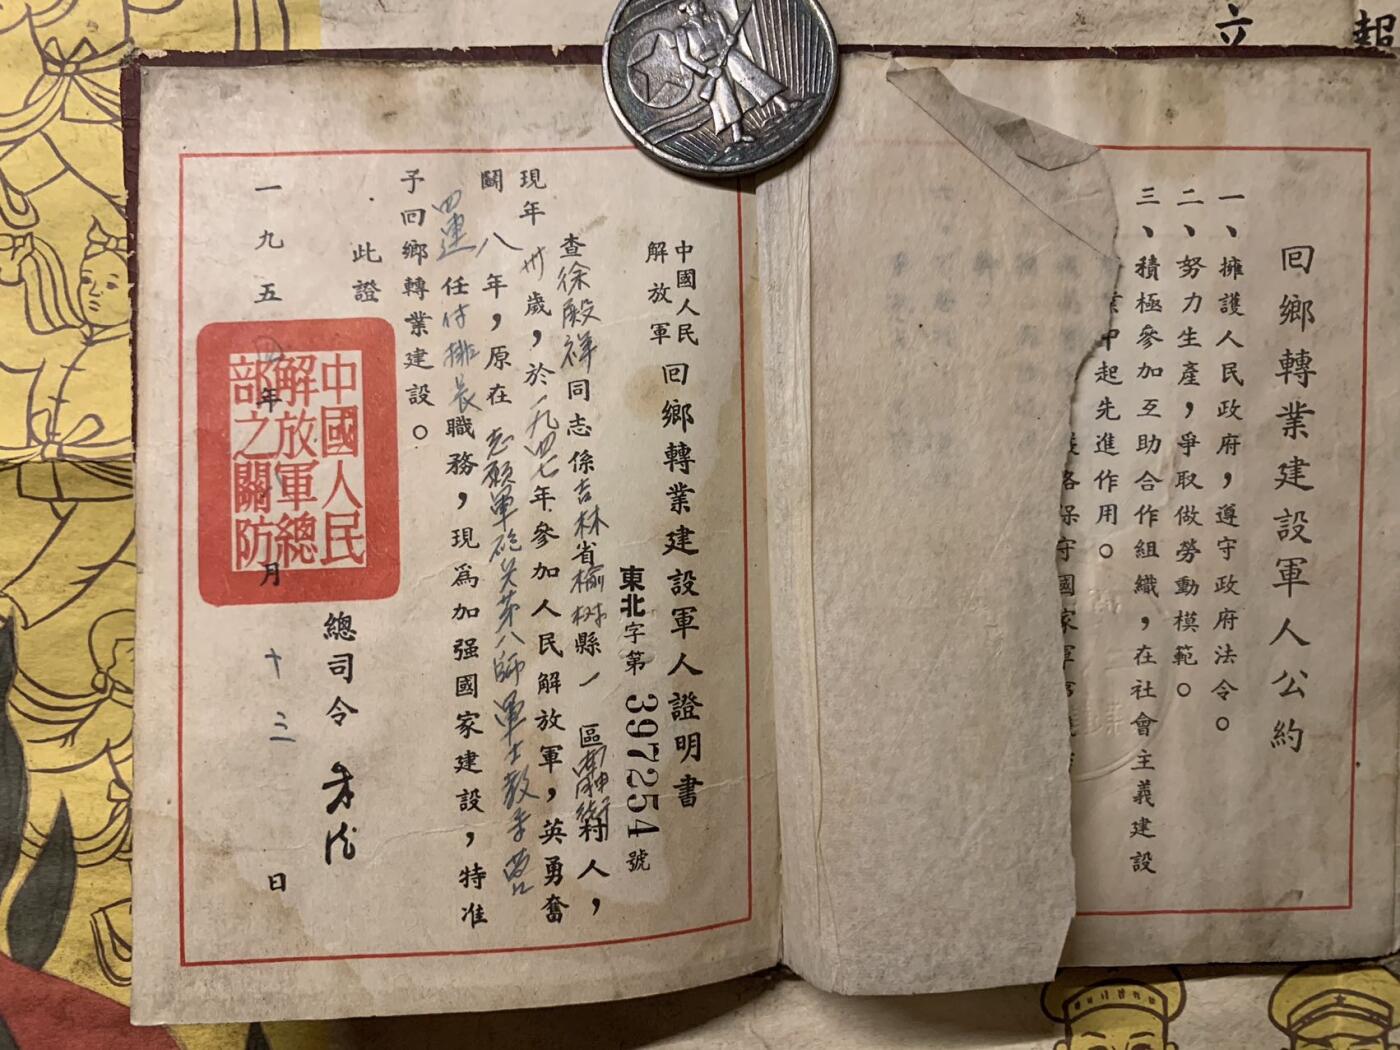 立 報
回鄉轉業建設軍人公約
一、擁護人民政府，遵守政府法令。
二、努力生產，爭取做勞動模範。
三、積極參加互助合作組織，在社會主義建設
業中起先進作用。
格保守國家軍事
中國人民
解放軍
回鄉轉業建設軍人證明書
東北字第397254號
查徐殿祥同志係吉林省榆树縣一區村人，
現年卅歲，於一九四七年參加人民解放軍，英勇奮
鬭八年，原在志願軍砲兵第八師軍士教導營
四連任付排長職務，現爲加强國家建設，特准
予回鄉轉業建設。
此證
總司令 朱德
一九五四年月十三日
中國人民
解放軍總
部之關防